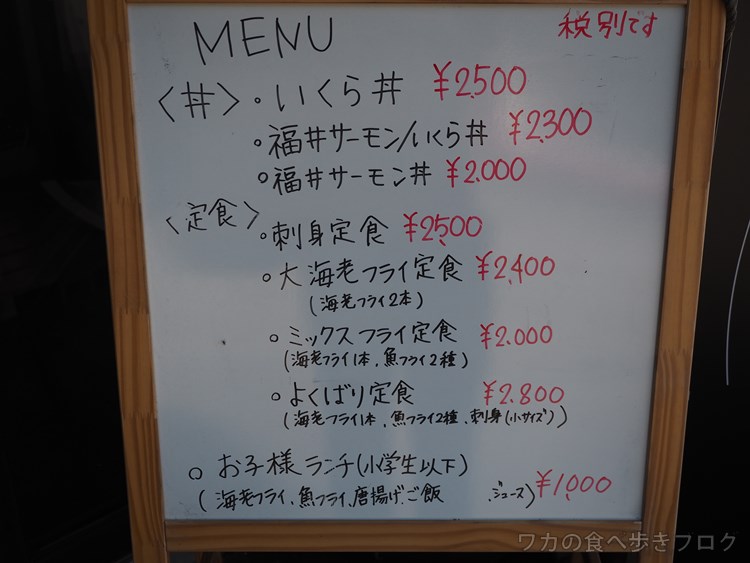 MENU
税別です
〈丼〉。いくら丼 ¥2,500
。福井サーモン/いくら丼 ¥2,300
。福井サーモン丼 ¥2,000
〈定食〉
。刺身定食 ¥2,500
。大海老フライ定食 ¥2,400
(海老フライ2本)
。ミックスフライ定食 ¥2,000
(海老フライ1本、魚フライ2種)
。よくばり定食 ¥2,800
(海老フライ1本、魚フライ2種、刺身(小サイズ))
。お子様ランチ(小学生以下)
(海老フライ、魚フライ、唐揚げ、ご飯、ジュース) ¥1,000
ワカの食べ歩きブログ